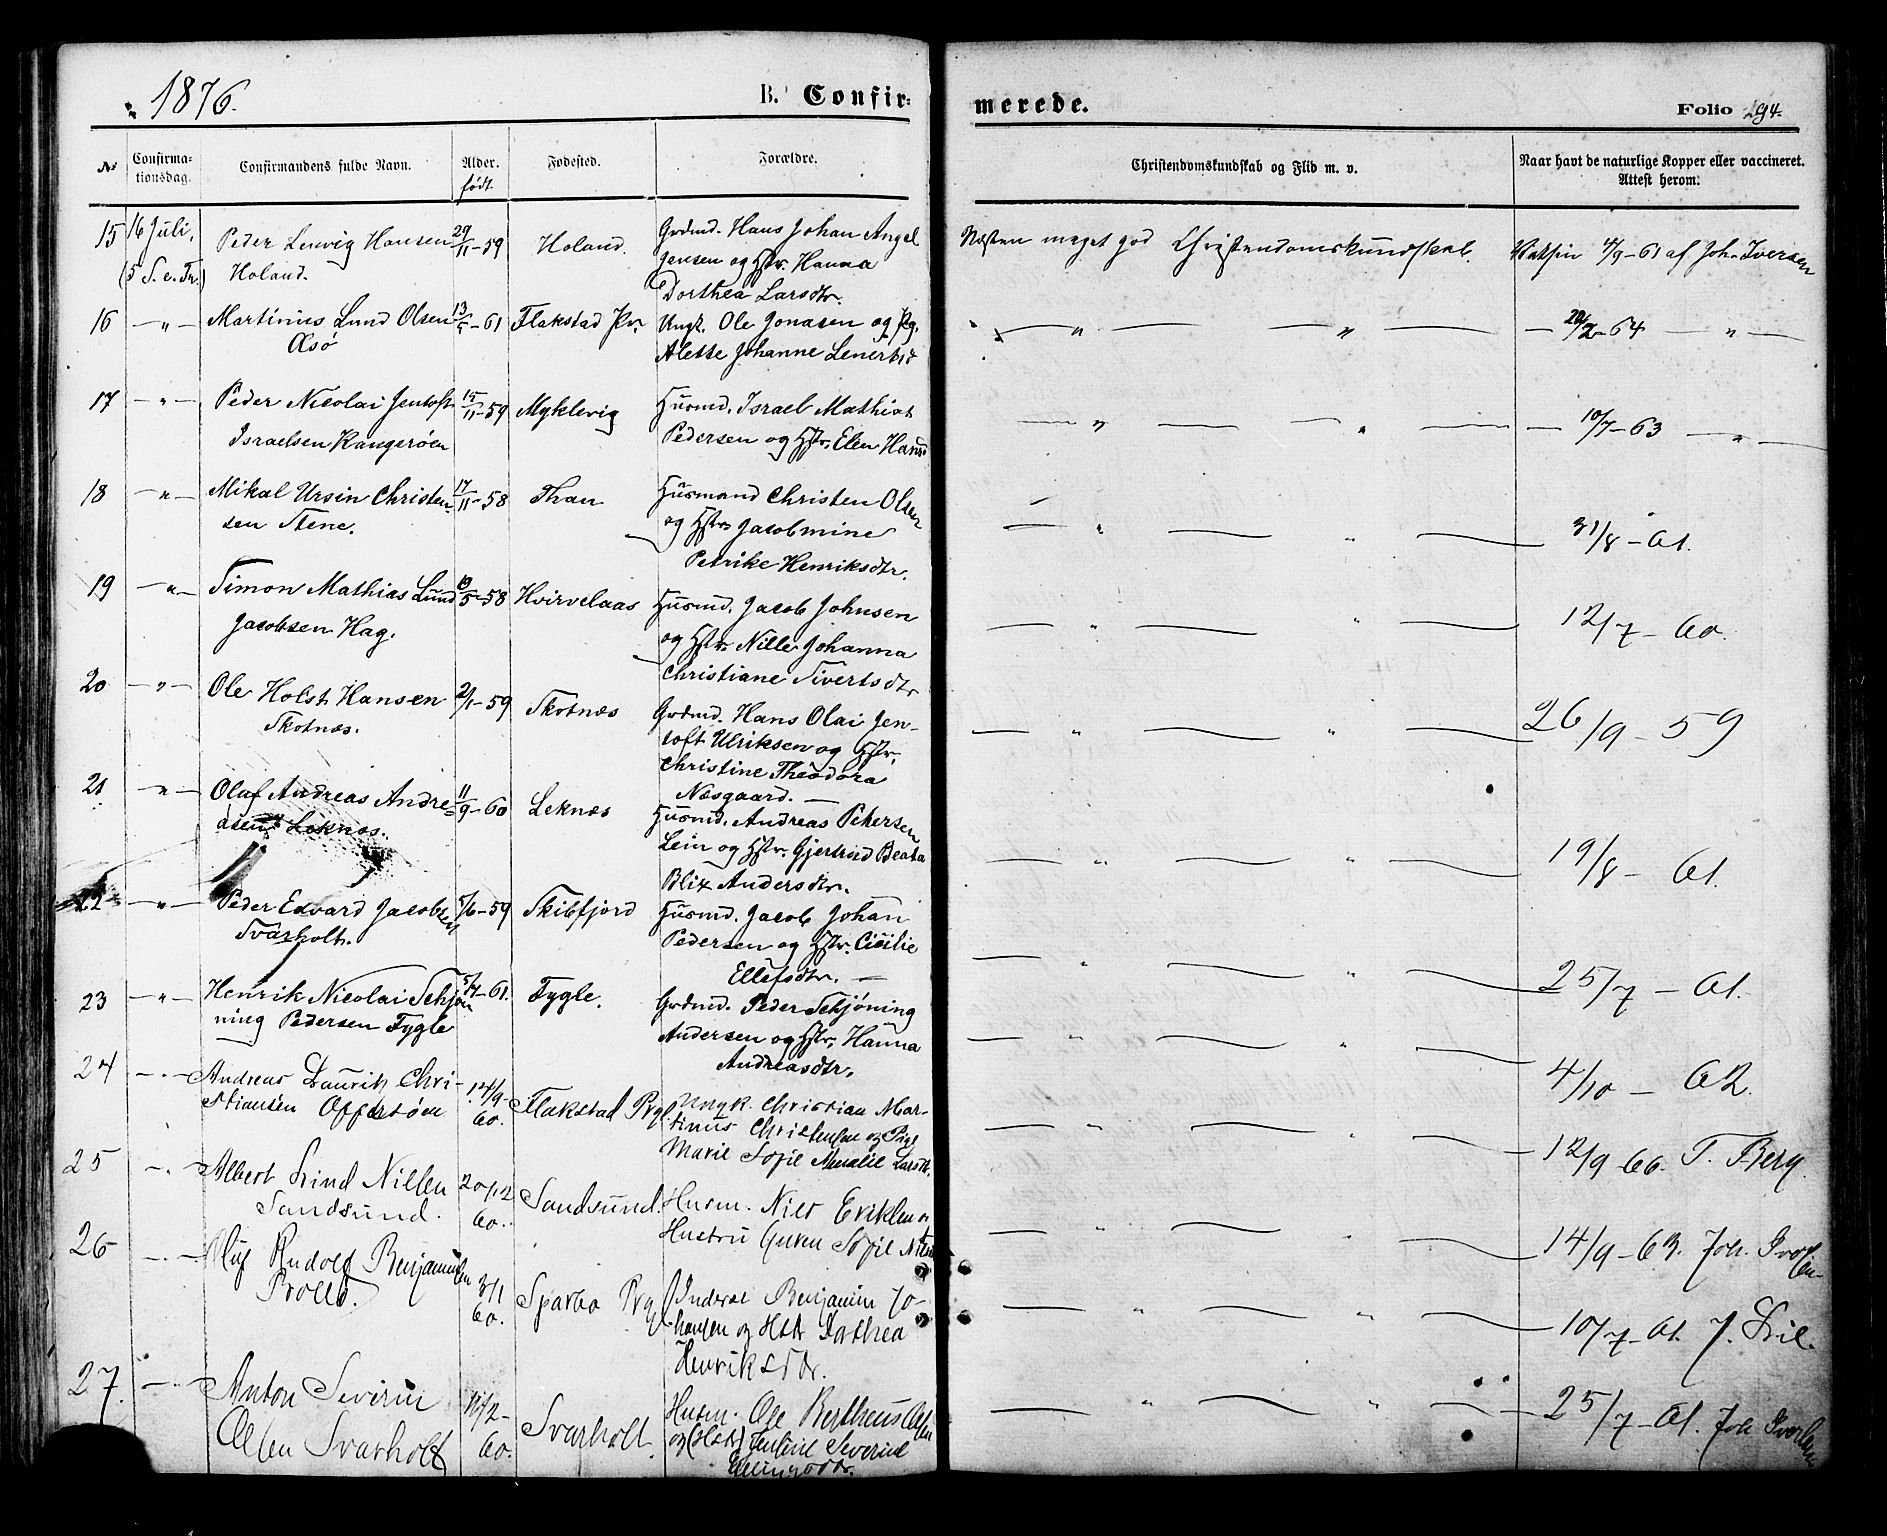 1876.
B. Confir-
merede.
Folio 294.
No
Confirma-
tionsdag.
Confirmandens fulde Navn.
Alder.
født
Fødested.
Forældre.
Christendomskundskab og Flid m. v.
Naar havt de naturlige Kopper eller vaccineret.
Attest herom.
15 16 Juli, Peder Ludvig Hansen 29/11-59 Holand. Grdmd. Hans Johan Angel Næsten meget god Christendomskundskab. Vaksin 4/9-61 af Joh. Iversen
(5 S. e. Tr.) Holand. Jensen og Hstr. Hanna
Dorthea Larsdtr.
16 — " — Martinus Lund Olsen 13/5-61 Flakstad Pr. Ungk. Ole Jonasen og Pg. — " — — " — 20/2-64 — " —
Æsø Alette Johanne Lenertsd
17 — " — Peder Nicolai Jentoft 15/11-59 Myklevig Husmd. Israel Mathias — " — — " — 10/7-63 — " —
Israelsen Kangerøen Pedersen og Hstr. Elen Hansd
18 — " — Mikal Ursin Christen- 17/11-58 Than Husmand Christen Olsen — " — — " — 31/8-61.
sen Stene. og Hstr. Jacobmine
Petrike Henriksdtr.
19 — " — Simon Mathias Lund 19/5-58 Hvirvelaas Husmd. Jacob Johnsen — " — — " — 12/7-60.
Jacobsen Hag. og Hstr. Nille Johanna
Christiane Sivertsdtr
20 — " — Ole Holst Hansen 2/1-59 Skotnæs Grdmd. Hans Olai Jen- — " — — " — 26/9-59
Skotnæs. toft Ulriksen og Hstr.
Christine Theodora
Næsgaard. —
21 — " — Olaf Andreas Andre- 11/9-60 Leknæs Husmd. Andreas Petersen — " — — " — 19/8-61.
asen Leknæs. Lein og Hstr. Gjertrud Beata
Blix Andersdtr.
22 — " — Peder Edvard Jacobsen 5/6-59 Skibfjord Husmd. Jacob Johan — " — — " — 25/7-61.
Svarholt. Pedersen og Hstr. Cicilie
Ellefsdtr. —
23 — " — Henrik Nicolai Schjøn- 5/4-61. Fygle. Grdmd. Peder Schjøning — " — — " — 4/10-62.
ning Pedersen Fygle Andersen og Hstr. Hanna
Andreasdtr.
24 — " — Andreas Laurits Chri- 14/9- Flakstad Prg. Ungk. Christian Mar- — " — — " — 12/9 66. T. Berg.
stiansen Offersøen 60. tinus Christensen og Pige
Marie Sofie Amalie Larsdtr.
25 — " — Albert Lind Nilsen 20/12 Sandsund. Husm. Nils Eriksen og — " — — " — 14/9-63. Joh. Iversen
Sandsund. 60. Hustru Guren Sofie Nilsd
26 — " — Oluf Rudolf Benjaminsen 3/1 Sparbo Prg. Inderst Benjamin Jo- — " — — " — 10/7-61. J. Lie.
60. hansen og Hstr Dorthea
Henriksdtr.
27. — " — Anton Severin 14/2- Svarholt. Husm. Ole Bertheus Olsen — " — — " — 25/7-61. Joh Iversen
Olsen Svarholt 60. og (Hstr) Severine
Ellingsdtr.